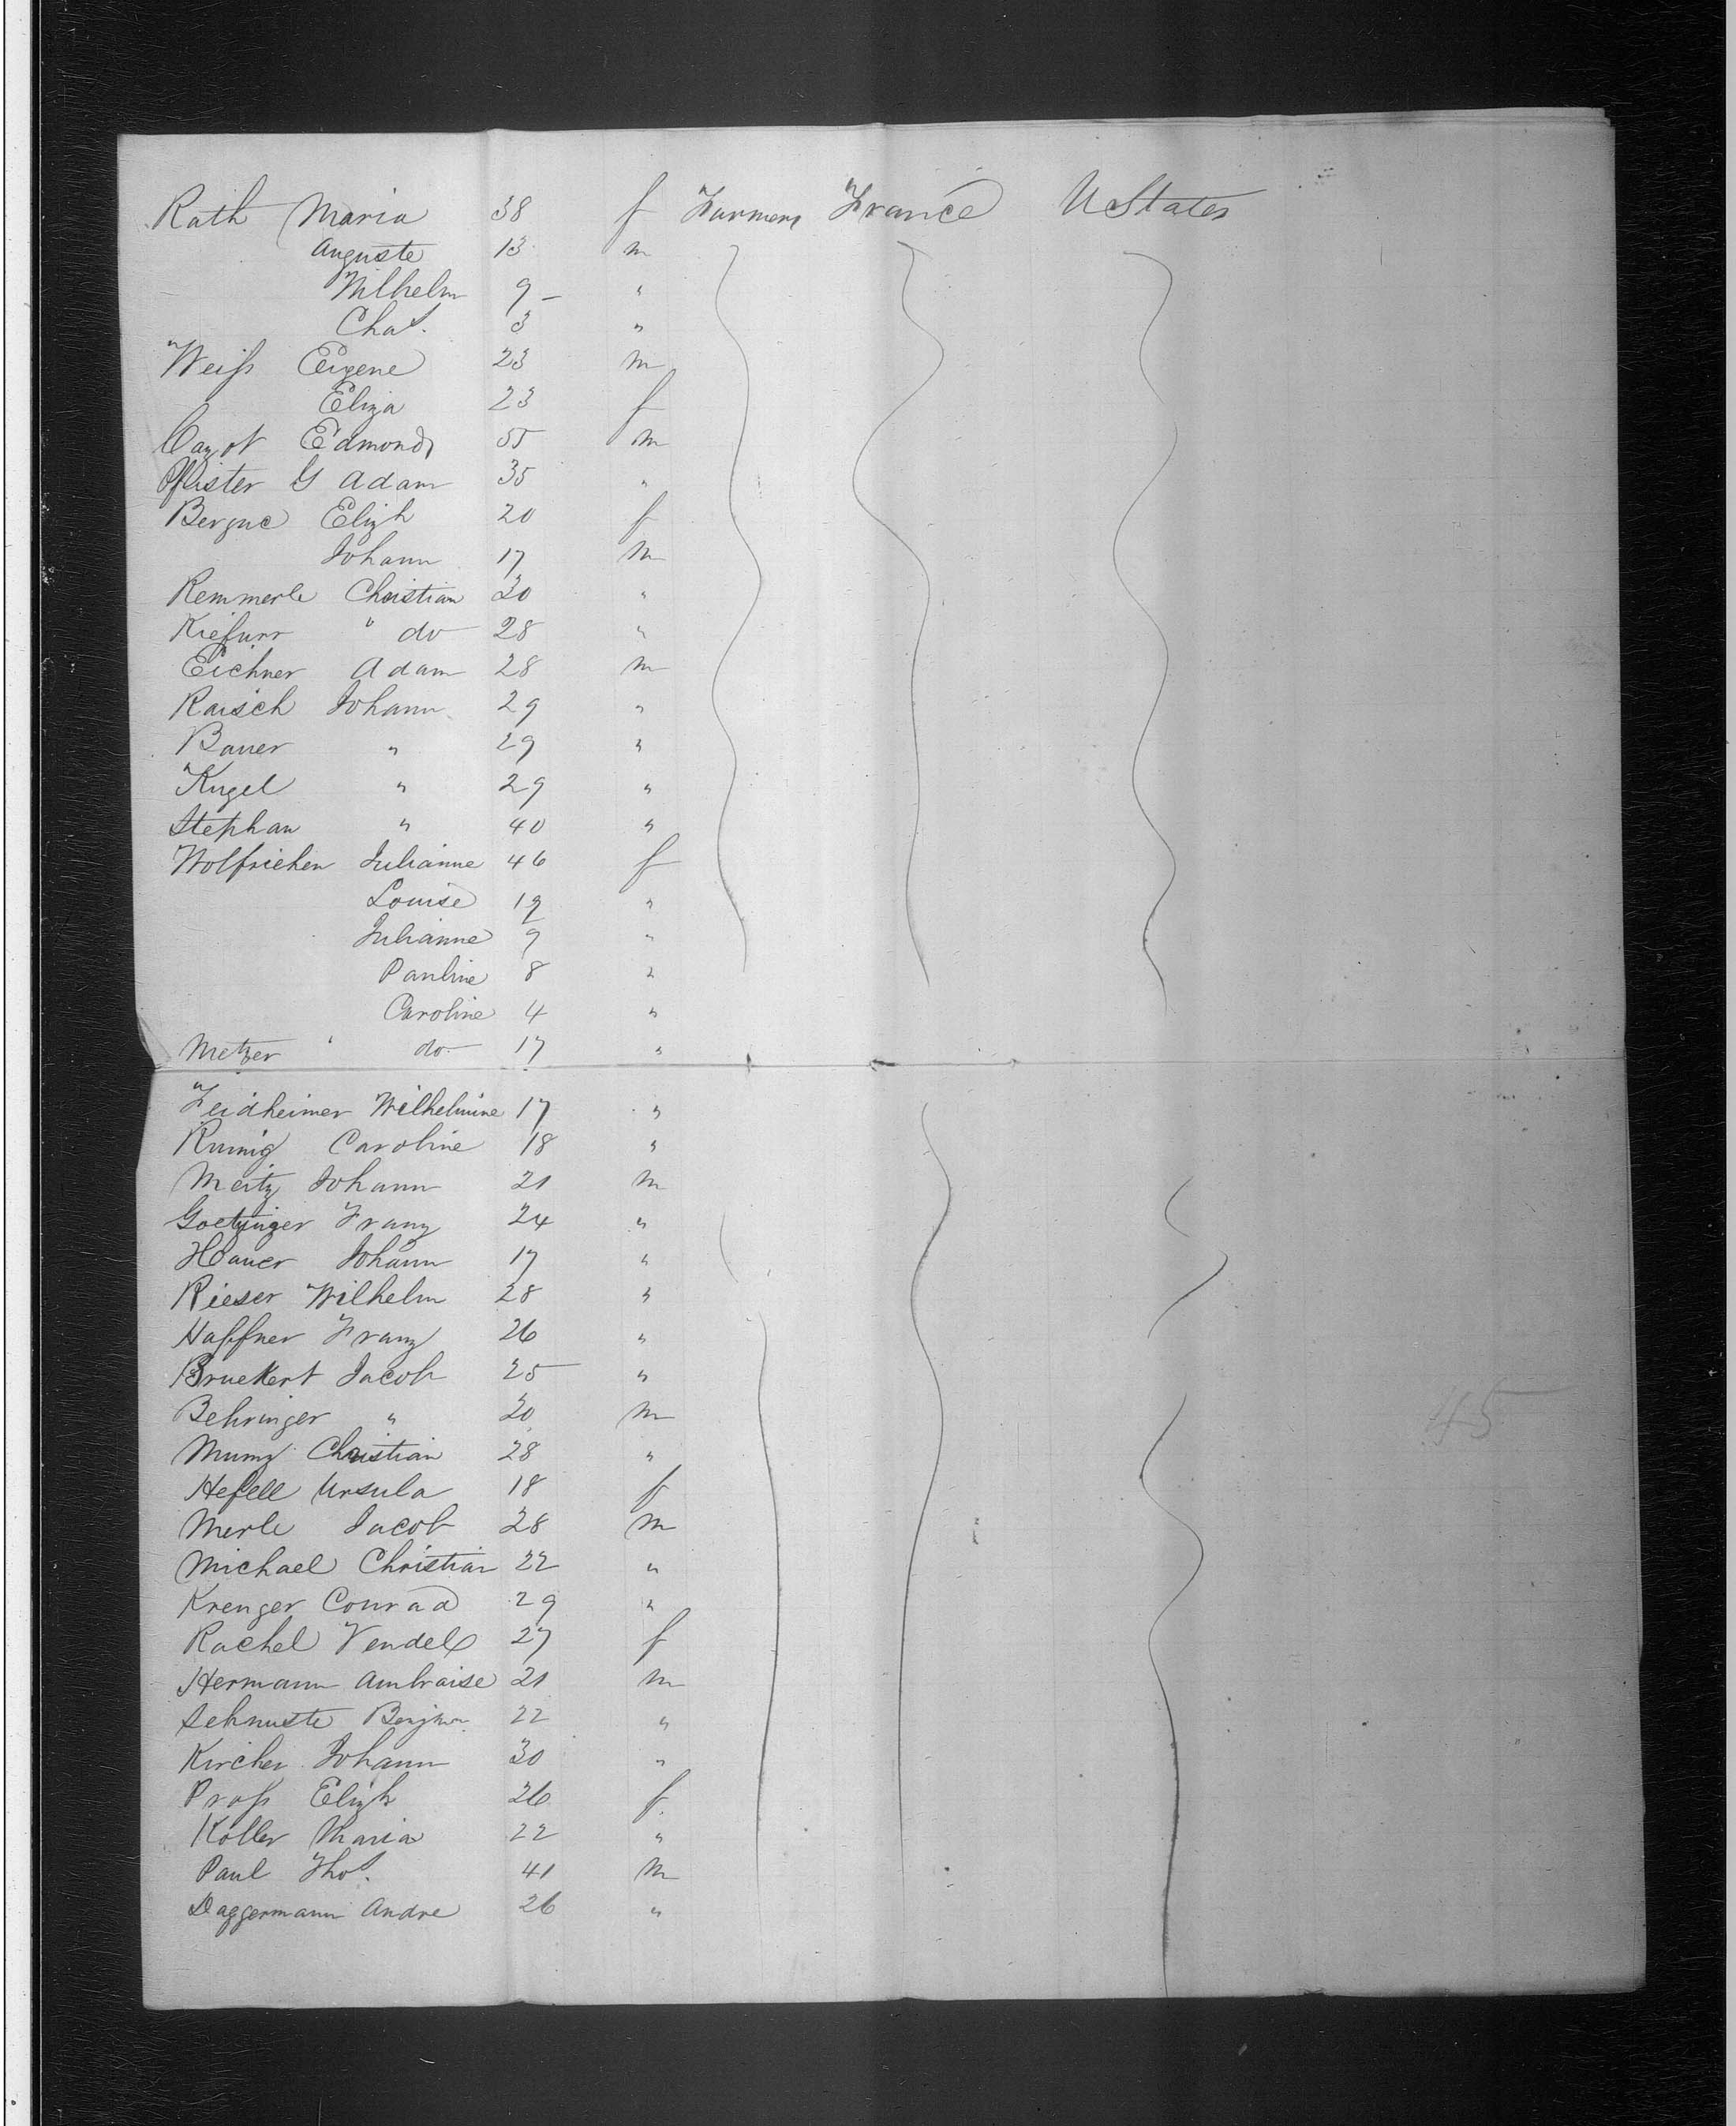 Rath Maria 38 f Farmers France U States
Auguste 13 m
Wilhelm 9 — "
Chas. 3 "
Weiss Eugene 23 m
Eliza 23 f
Cazot Edmond 55 m
Pfister G Adam 35 "
Bergue Elizh 20 f
Johann 17 m
Remmerle Christian 30 "
Kiefurr " do 28 "
Eichner Adam 28 m
Raisch Johann 29 "
Bauer " 29 "
Kugel " 29 "
Stephan " 40 "
Wolfriehen Julianne 46 f
Louise 19 "
Julianne 9 "
Pauline 8 "
Caroline 4 "
Metzer " do 17 "
Feidheimer Wilhelmine 17 "
Caroline 18 "
Meitz Johann 21 m
Goetzinger Franz 24 "
Hauer Johann 17 "
Rieser Wilhelm 28 "
Haffner Franz 26 "
Bruckert Jacob 25 "
Behringer " 30 m
Munz Christian 28 "
Hefell Ursula 18 f
Merle Jacob 28 m
Michael Christian 22 "
Krenger Conrad 29 "
Rachel Vendel 27 f
Hermann Ambraise 21 m
Benjmn 22 "
Kircher Johann 30 "
Pross Elizh 26 f.
Koller Maria 22 "
Paul Thos. 41 m
Daggermann Andre 26 "
45